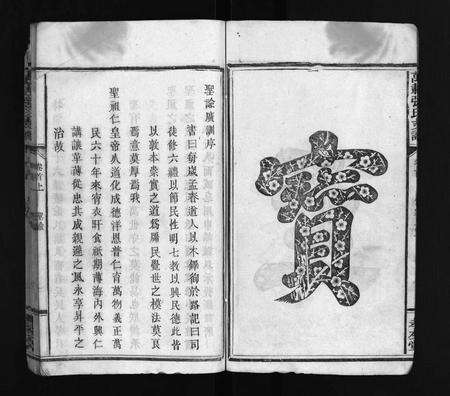 寶
聖諭廣訓序
書曰每歲孟春遒人以木鐸徇於路記曰司
徒修六禮以節民性明七教以興民德此皆
以敦本崇實之道為牖民覺世之模法莫良
焉意莫厚焉我
聖祖仁皇帝久道化成德洋恩普仁育萬物義正萬
民六十年來宵衣旰食祇期薄海內外興仁
講讓革薄從忠共成親遜之風永享昇平之
治故
卷首上
聖諭